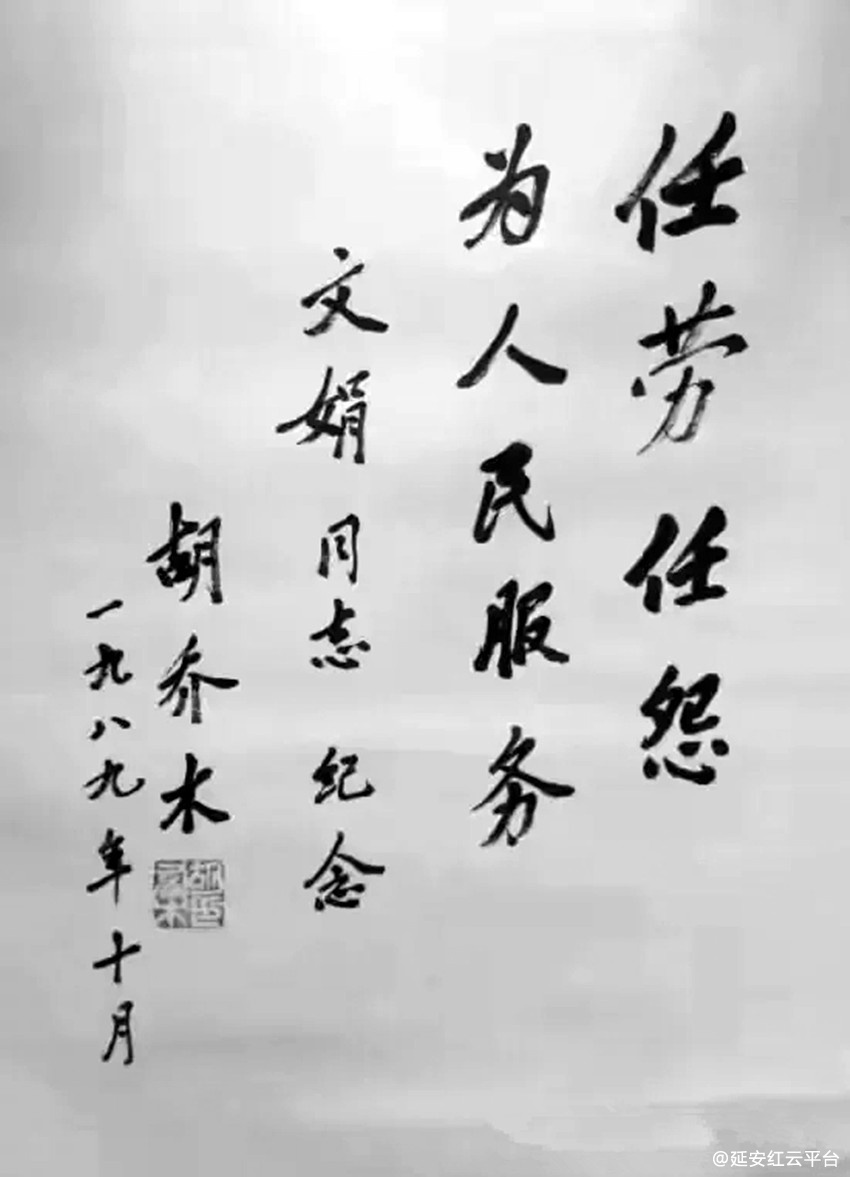 任劳任怨
为人民服务
文娟同志纪念
胡乔木
一九八九年十月
@延安红云平台